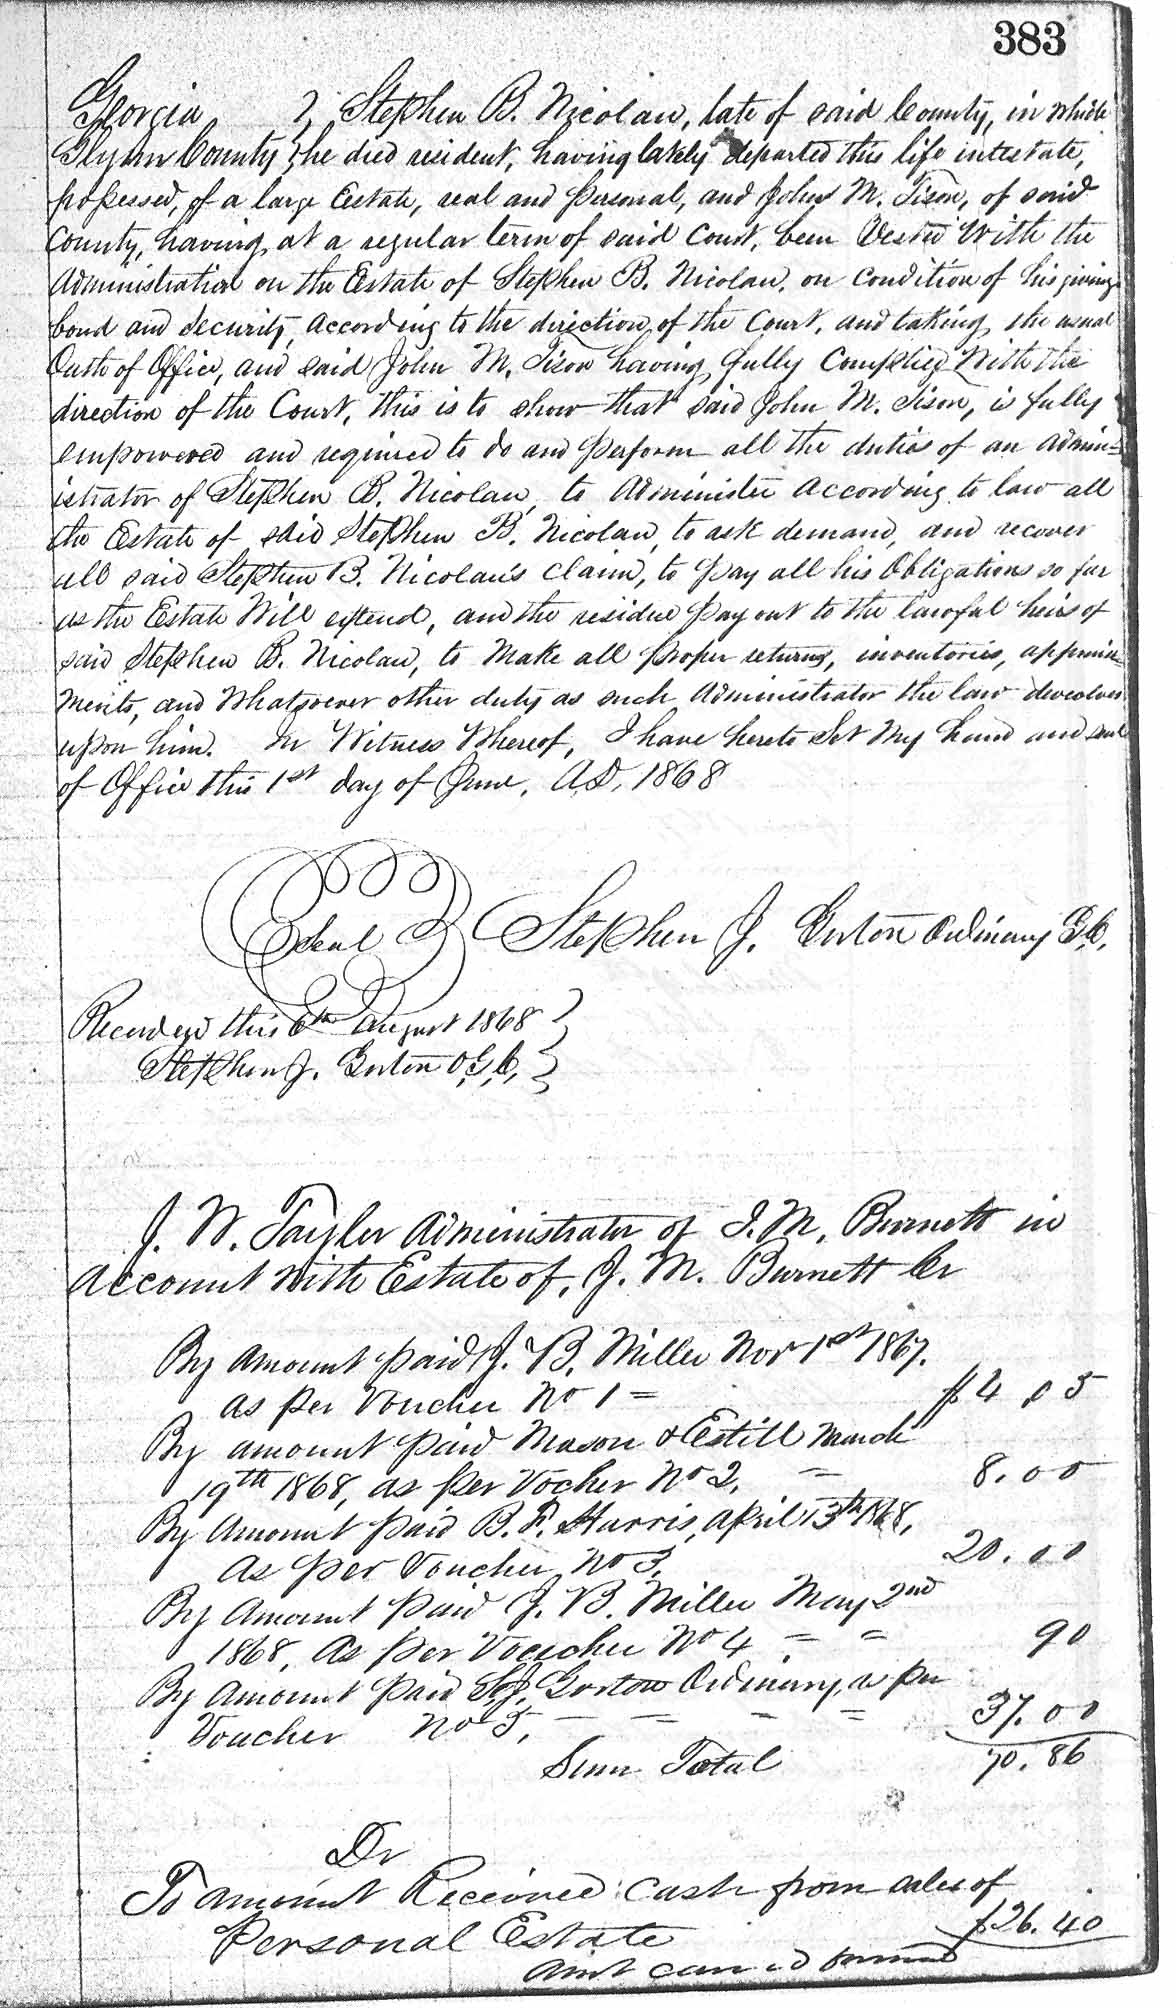 383
Georgia } Stephen B. Nicolau, late of said County, in which
Glynn County } he died resident, having lately departed this life intestate,
possessed, of a large Estate, real and personal, and John M. Tison, of said
County, having, at a regular term of said Court, been Vested With the
Administration on the Estate of Stephen B. Nicolau, on condition of his giving
bond and security, according to the direction, of the Court, and taking the usual
Oath of Office, and said John M. Tison having, fully Complied With the
direction of the Court, this is to show that said John M. Tison, is fully
empowered and required to do and perform all the duties of an Admin=
istrator of Stephen B. Nicolau, to Administer According, to law all
the Estate of said Stephen B. Nicolau, to ask demand, and recover
all said Stephen B. Nicolau's Claim, to pay all his Obligations so far
as the Estate Will extend, and the residue pay out to the lawful heirs of
said Stephen B. Nicolau, to Make all proper returns, inventories, appraise=
ments, and Whatsoever other duty as such Administrator the law devolves
upon him. In Witness Whereof, I have hereto Set My hand and seal
of Office this 1st day of June, A.D. 1868
Seal Stephen J. Gorton Ordinary G.C.
Recorded this 6th August 1868
Stephen J. Gorton O.G.C.
J. W. Tayler Administrator of J. M. Burnett in
Account With Estate of, J. M. Burnett Cr
By Amount paid J. B. Miller Nov 1st 1867.
as per Voucher No 1 = $4 05
By amount paid Mason & Estill March
19th 1868, as per Vocher No 2, = 8.00
By Amount paid B. F. Harris, April 13th 1868,
As per Voucher No 3, 20.00
By Amount paid J. B. Miller May 2nd
1868, As per Voucher No 4 = = 90
By Amount paid S. J. Gorton Ordinary, as per
Voucher No 5, = = = = 37.00
Sum Total 70.86
Dr
To amount Received cash from sales of
Personal Estate $26.40
Amt carried forward